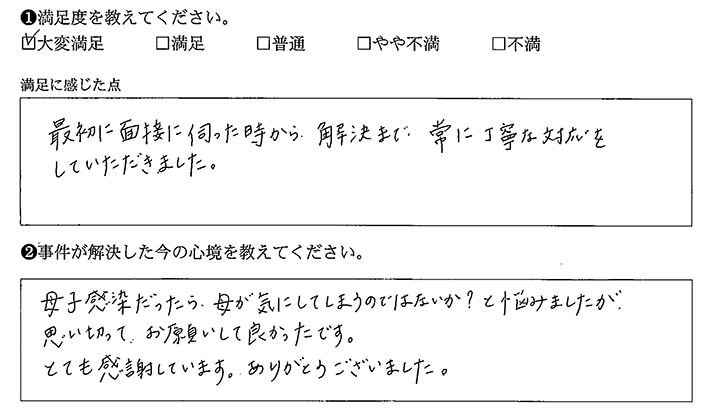 ❶満足度を教えてください。
☑大変満足 □満足 □普通 □やや不満 □不満
満足に感じた点
最初に面接に伺った時から、解決まで、常に丁寧な対応を
していただきました。
❷事件が解決した今の心境を教えてください。
母子感染だったら、母が気にしてしまうのではないか?と悩みましたが、
思い切って、お願いして良かったです。
とても感謝しています。ありがとうございました。